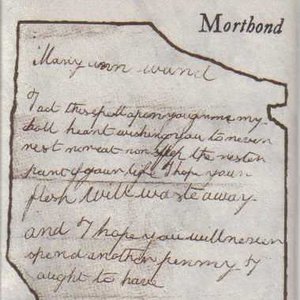 Morthond
Mary ann ward
I act this spell upon you from my
holl heart wishing you to never
rest nor eat nor sleep the resten
part of your life I hope your
flesh will waste away
and I hope you will never
spend another penny I
aught to have